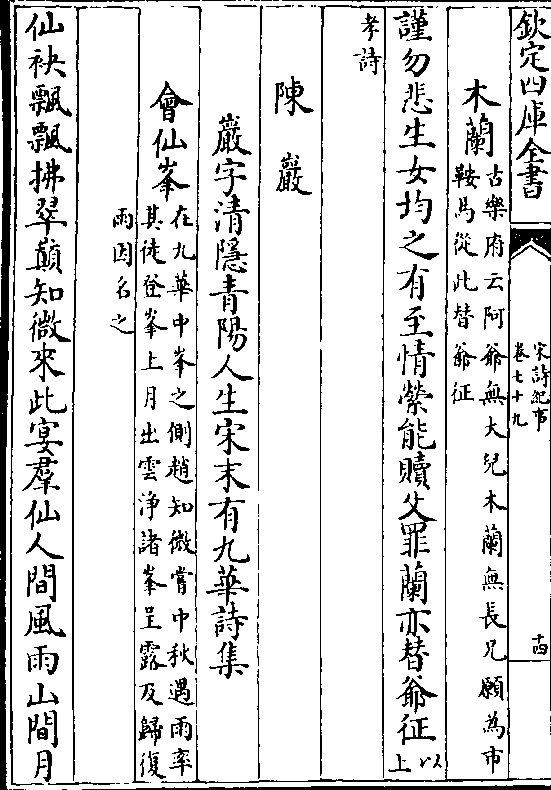 欽定四庫全書
宋詩紀事
卷七十九
十四
木蘭
古樂府云阿爺無大兒木蘭無長兄願為市
鞍馬從此替爺征
謹勿悲生女均之有至情縈能贖父罪蘭亦替爺征
以上
孝詩
陳巖
巖字清隱青陽人生宋末有九華詩集
會仙峯
在九華中峯之側趙知微嘗中秋遇雨率
其徒登峯上月出雲浄諸峯呈露及歸復
雨因名之
仙袂飄飄拂翠巔知微來此宴羣仙人間風雨山間月